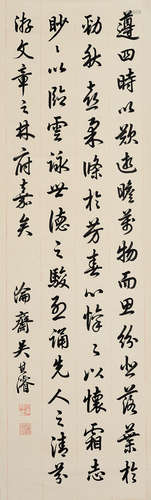 遵四時以歎逝瞻萬物而思紛悲落葉於
勁秋喜柔條於芳春心懍〻以懷霜志
眇〻以臨雲詠世德之駿烈誦先人之清芬
游文章之林府嘉矣 瀹齋吳其濬